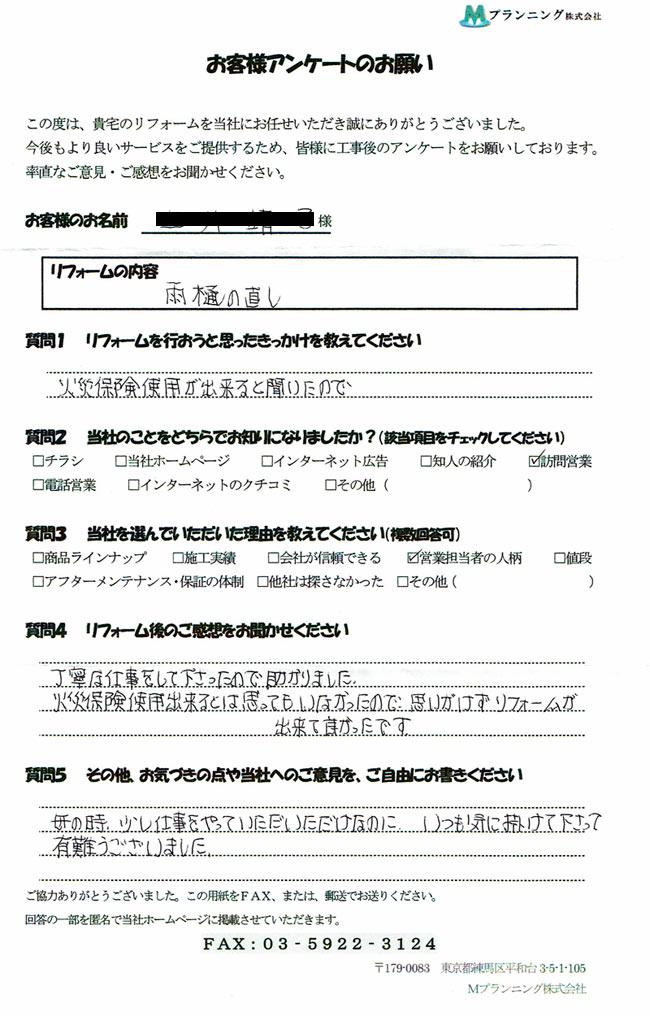 Mプランニング株式会社
お客様アンケートのお願い
この度は、貴宅のリフォームを当社にお任せいただき誠にありがとうございました。
今後もより良いサービスをご提供するため、皆様に工事後のアンケートをお願いしております。
率直なご意見・ご感想をお聞かせください。
お客様のお名前 様
リフォームの内容
雨樋の直し
質問1 リフォームを行おうと思ったきっかけを教えてください
火災保険使用が出来ると聞いたので
質問2 当社のことをどちらでお知りになりましたか？(該当項目をチェックしてください)
□チラシ □当社ホームページ □インターネット広告 □知人の紹介 ☑訪問営業
□電話営業 □インターネットのクチコミ □その他（ ）
質問3 当社を選んでいただいた理由を教えてください(複数回答可)
□商品ラインナップ □施工実績 □会社が信頼できる ☑営業担当者の人柄 □値段
□アフターメンテナンス・保証の体制 □他社は探さなかった □その他（ ）
質問4 リフォーム後のご感想をお聞かせください
丁寧な仕事をして下さったので助かりました。
火災保険使用出来るとは思ってもいなかったので、思いがけずリフォームが
出来て良かったです
質問5 その他、お気づきの点や当社へのご意見を、ご自由にお書きください
の時、少し仕事をやっていただいただけなのに、いつも気にかけて下さって
有難うございました。
ご協力ありがとうございました。この用紙をFAX、または、郵送でお送りください。
回答の一部を匿名で当社ホームページに掲載させていただきます。
FAX：03-5922-3124
〒179-0083 東京都練馬区平和台3-5-1-105
Mプランニング株式会社